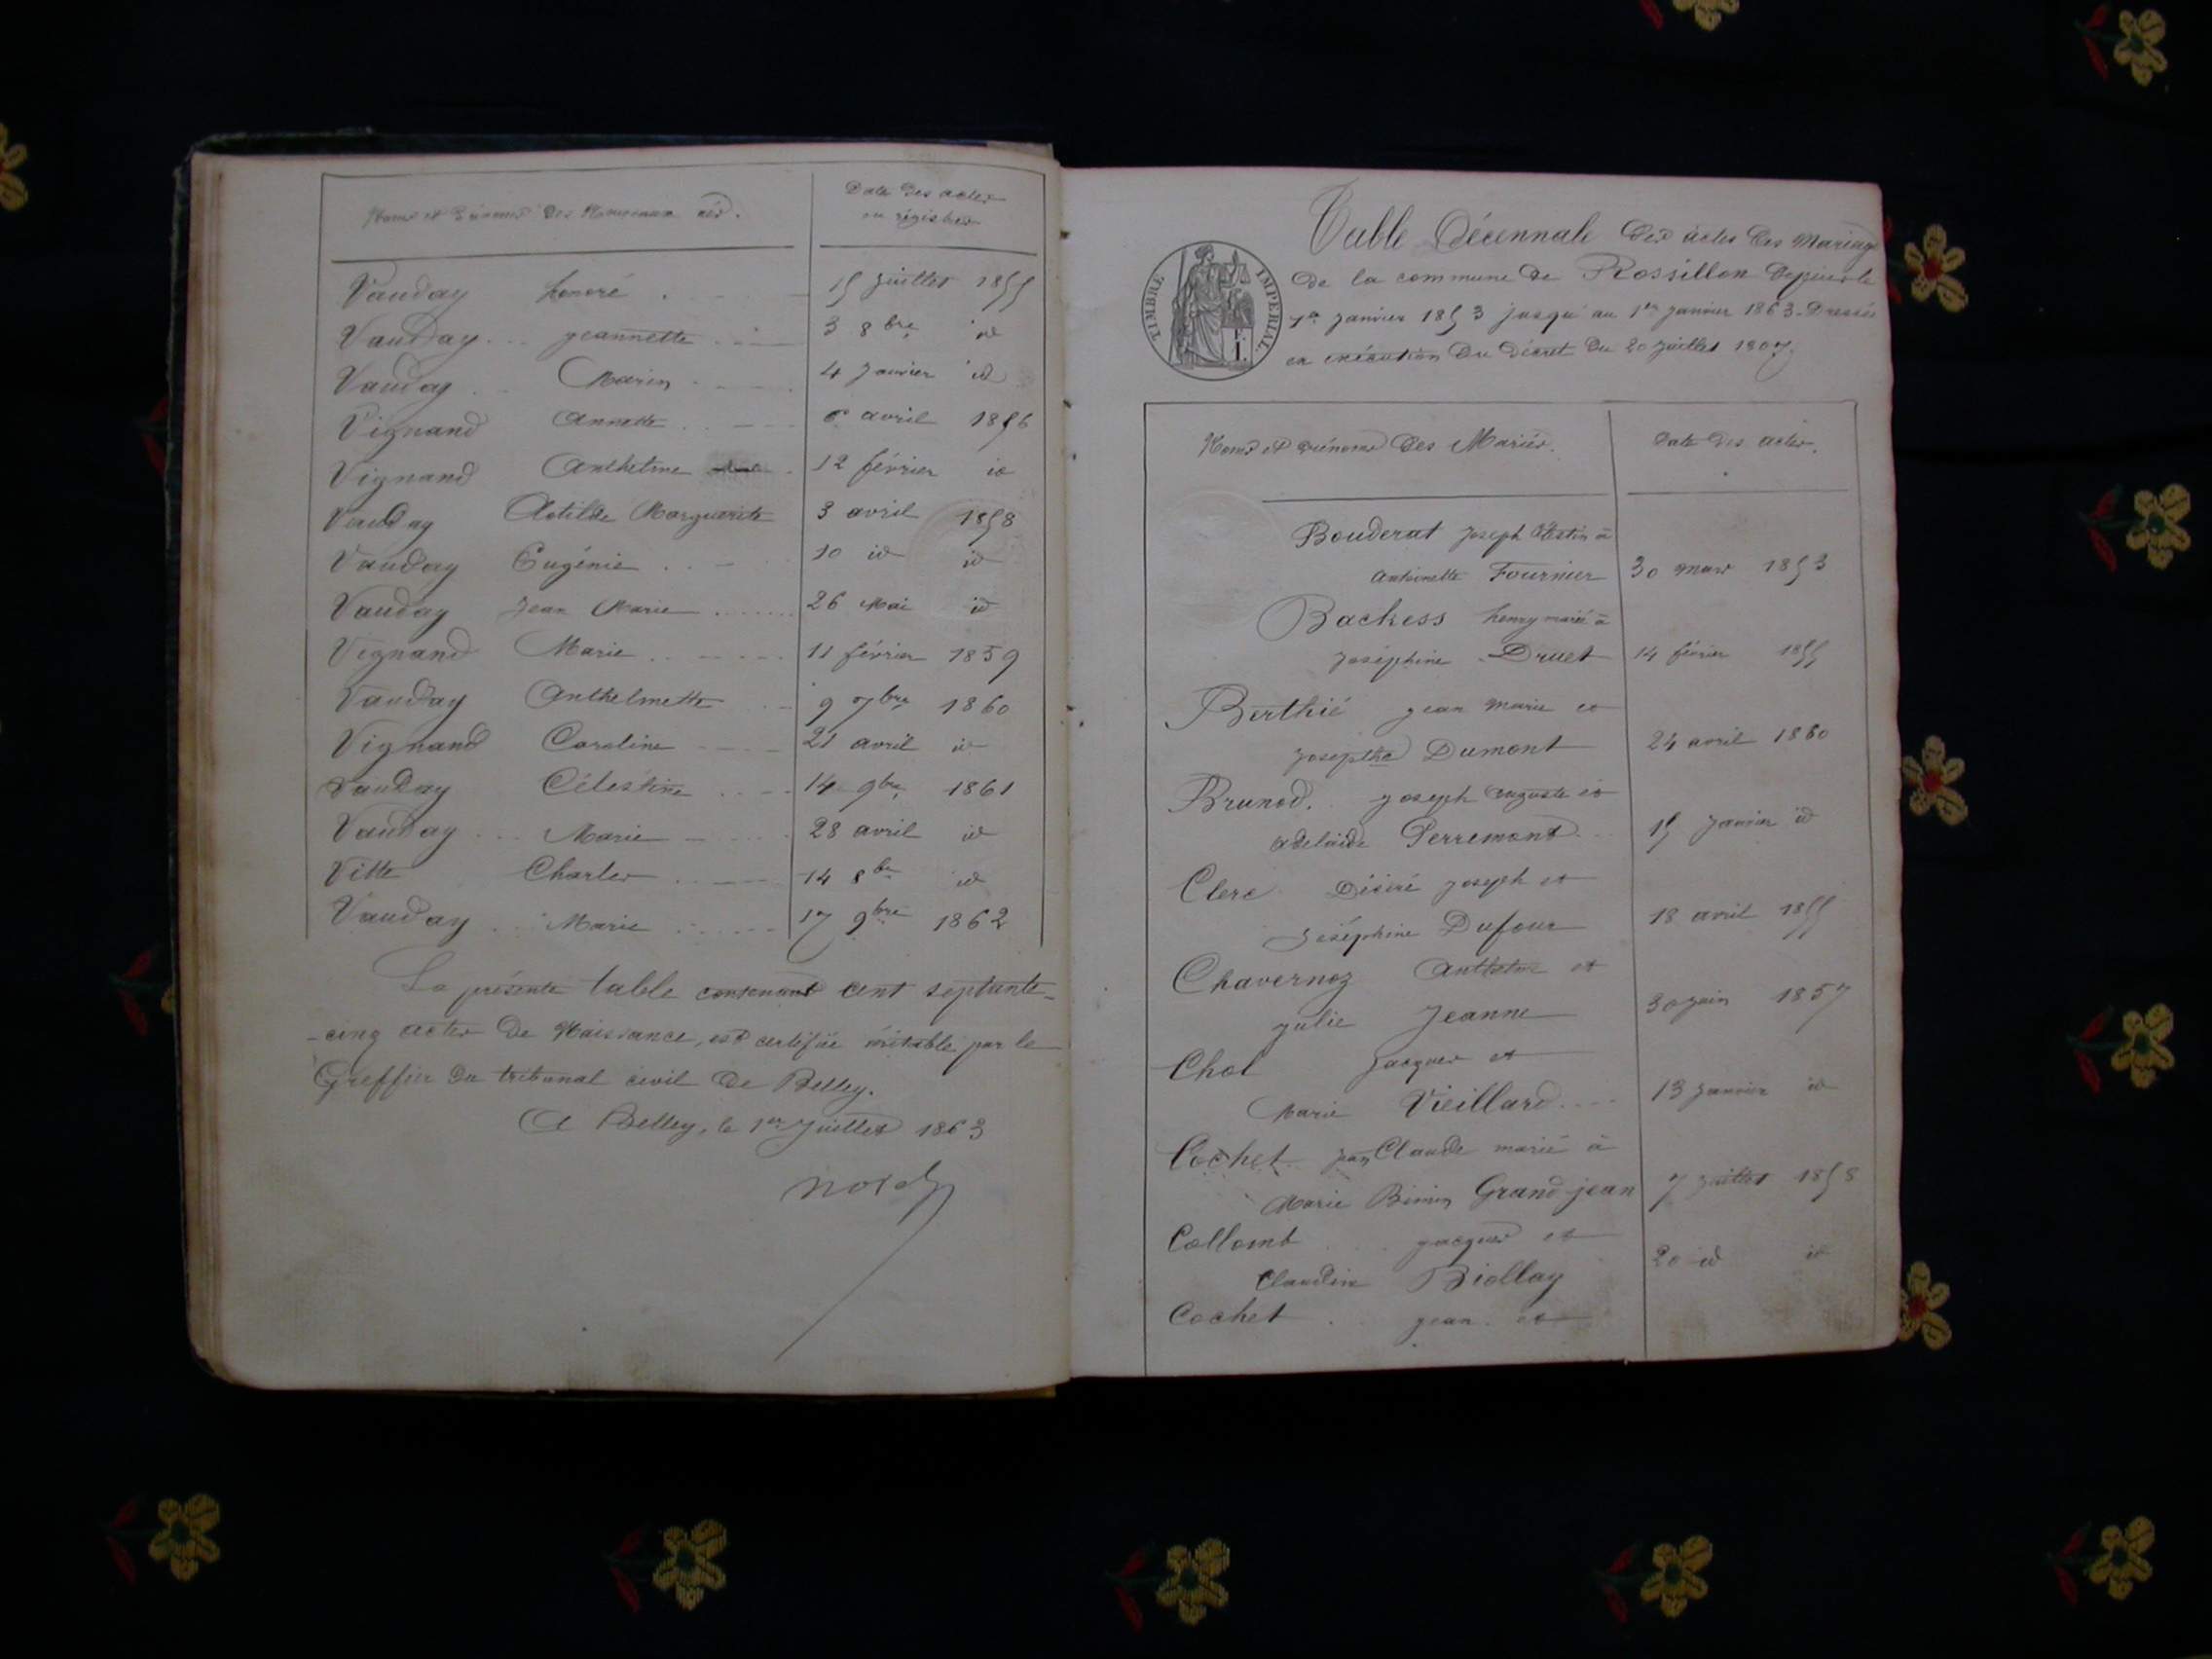 Noms et Prénoms des Nouveaux nés.
Date des actes
au registre
Vauday honoré 15 Juillet 1855
Vauday jeannette 3 8bre id
Vauday Marin 4 Janvier id
Vignand Annette 6 avril 1856
Vignand Anthelme 12 février id
Vauday Clotilde Marguerite 3 avril 1858
Vauday Eugénie 10 id id
Vauday Jean Marie 26 Mai id
Vignand Marie 11 février 1859
Vauday Anthelmette 9 7bre 1860
Vignand Caroline 21 avril id
Vauday Célestine 14 9bre 1861
Vauday Marie 28 avril id
Vitte Charles 14 8bre id
Vauday Marie 17 9bre 1862
La présente table contenant cent septante-
-cinq actes de Naissance, est certifiée véritable par le
Greffier du tribunal civil de Belley.
A Belley, le 1er Juillet 1863
TIMBRE IMPERIAL
Table Décennale des actes des Mariage
de la commune de Rossillon depuis le
1er Janvier 1853 jusqu'au 1er Janvier 1863. Dressée
en exécution du Décret du 20 Juillet 1807.
Noms et prénoms des Mariés.
Date des actes.
Bouderat Joseph Célestin à
Antoinette Fournier 30 mars 1853
Backess henry marié à
Joséphine Druet 14 février 1855
Berthié jean Marie et
Josephte Dumont 24 avril 1860
Brunod. Joseph auguste et
Adelaide Perremond 15 Janvier id
Clerc Désiré Joseph et
Joséphine Dufour 18 avril 1855
Chavernoz Anthelme et
Julie Jeanne 30 juin 1857
Chol Jacques et
Marie Vieillard 13 Janvier id
Cochet jean Claude marié à
Marie Grand-jean 7 Juillet 1858
Collomb jacques et
Claudine Biollay 20 id id
Cochet jean et